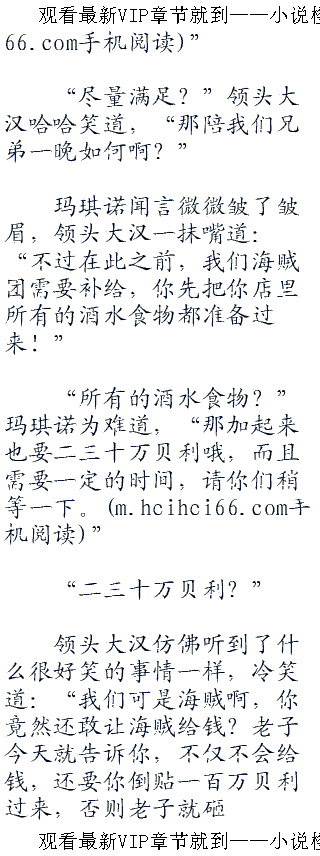 观看最新VIP章节就到——小说桂
66.com手机阅读)”
“尽量满足？”领头大
汉哈哈笑道，“那陪我们兄
弟一晚如何啊？”
玛琪诺闻言微微皱了皱
眉，领头大汉一抹嘴道：
“不过在此之前，我们海贼
团需要补给，你先把你店里
所有的酒水食物都准备过
来！”
“所有的酒水食物？”
玛琪诺为难道，“那加起来
也要二三十万贝利哦，而且
需要一定的时间，请你们稍
等一下。(m.hcihci66.com手
机阅读)”
“二三十万贝利？”
领头大汉仿佛听到了什
么很好笑的事情一样，冷笑
道：“我们可是海贼啊，你
竟然还敢让海贼给钱？老子
今天就告诉你，不仅不会给
钱，还要你倒贴一百万贝利
过来，否则老子就砸
观看最新VIP章节就到——小说